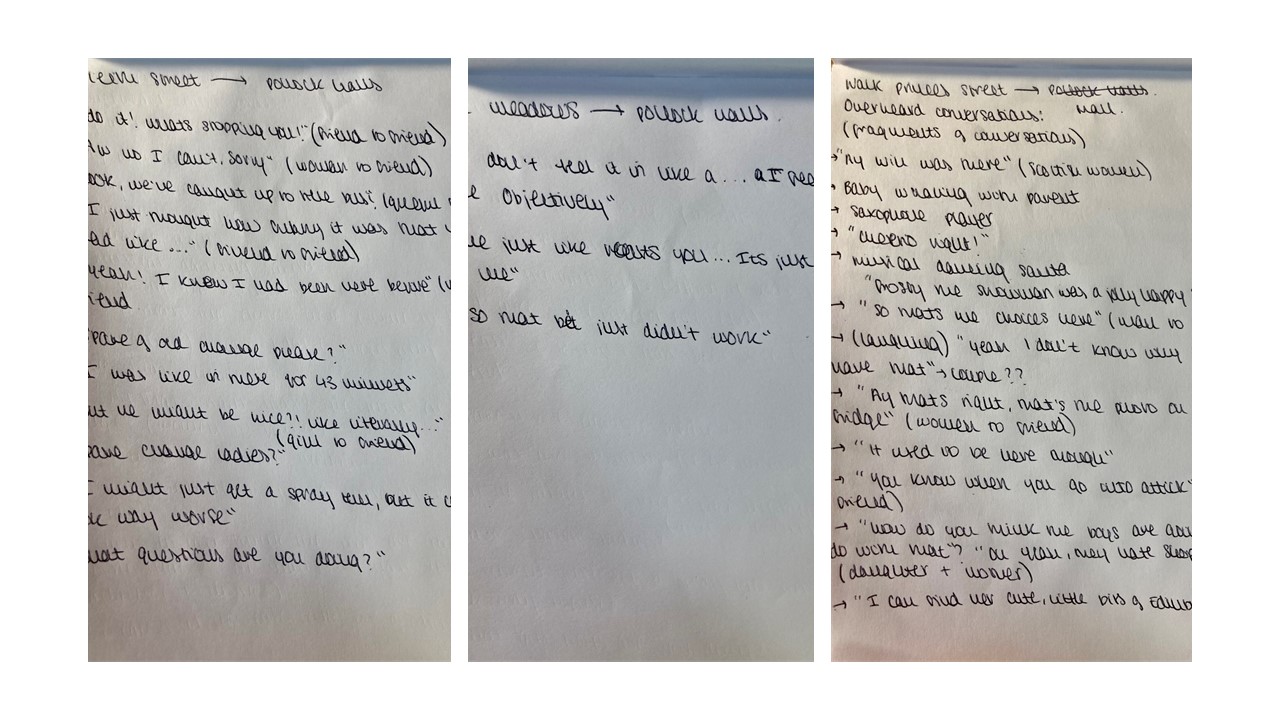 street → pollock halls
do it! whats stopping you!" (friend to friend)
no I can't, sorry" (woman to friend)
we've caught up to the bus"
I just thought how funny it was that
like ..." (friend to friend)
yeah! I knew I had been here before"
friend
of old change please?"
I was like in there for 43 minuets"
he might be nice?! like literally..."
(girl to friend)
change ladies?"
I might just get a spray tan, but it
way worse"
questions are you doing?"
meadows → pollock halls.
don't tell it in like a ... a I
Objectively"
just like you ... Its just
me"
So that just didn't work"
Walk princes street → pollock halls.
Mall.
Overheard conversations:
(fragments of conversations)
→ "My will was there" (Scottish women)
→ Baby with parent
→ saxophone player
→ "cheerio right!"
→ musical dancing santa
"frosty the snowman was a jolly happy
→ "so thats the choices here" (man to
→ (laughing) "yeah I don't know why
have that" → couple??
→ "Ay thats right, that's the photo on
fridge" (women to friend)
→ "It used to be here though"
→ "you know when you go into attick"
friend)
→ "how do you think the boys are
do with that"? "oh yeah, they hate
(daughter + mother)
→ "I can find her cute, little bits of